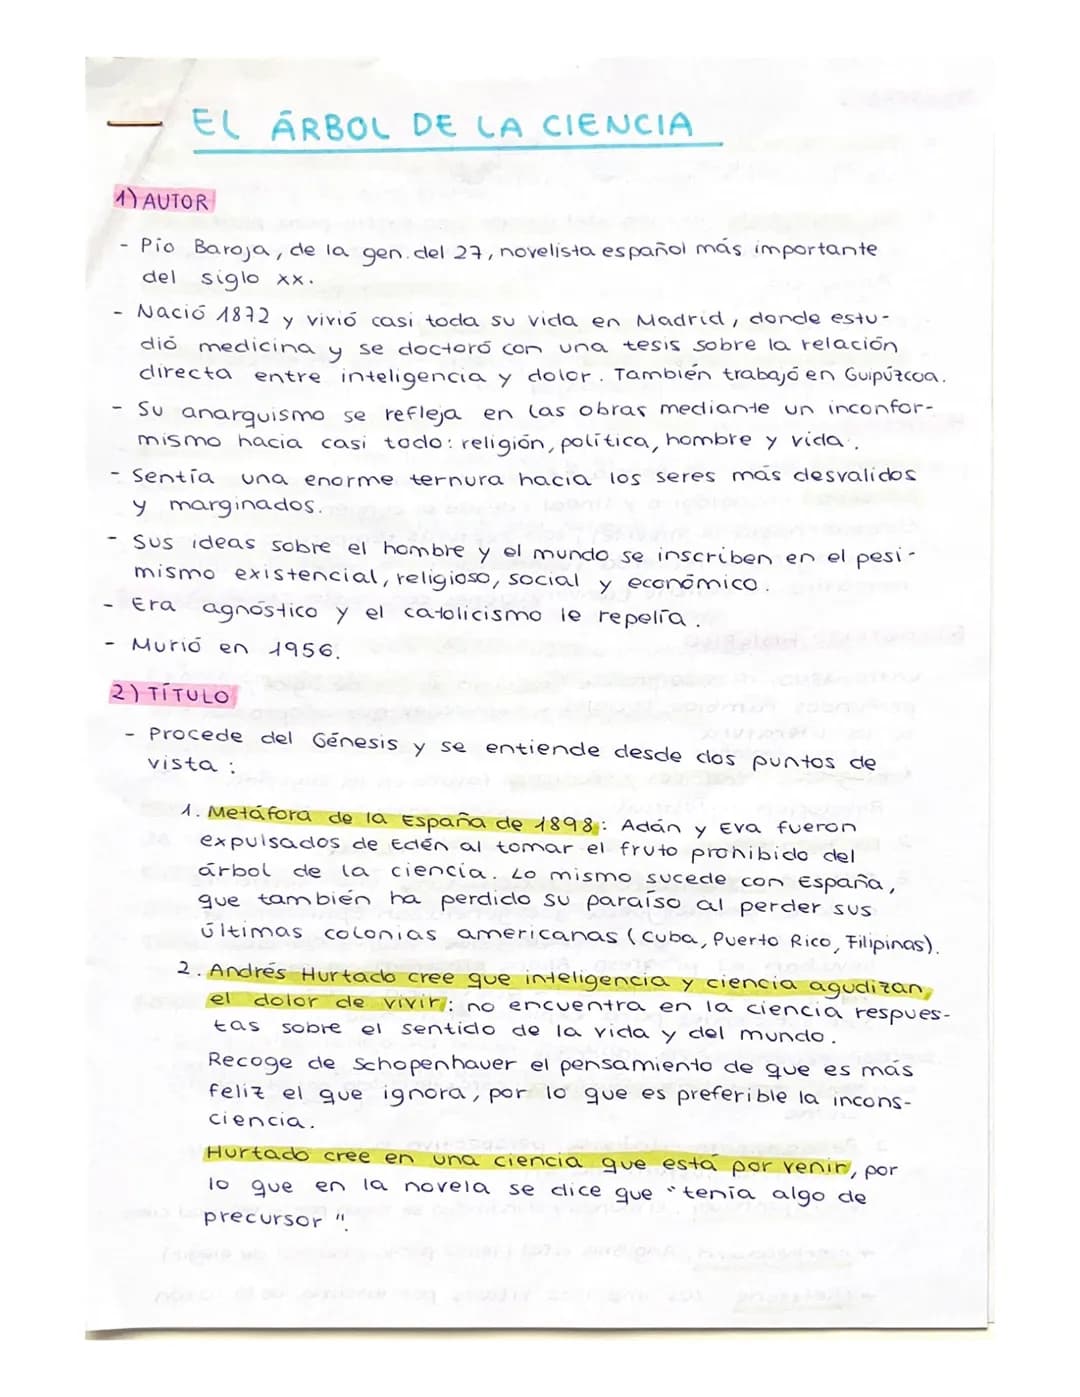 EL ÁRBOL DE LA CIENCIA
1) AUTOR
- Pío Baroja, de la gen. del 27, novelista español más importante
del siglo xx.
- Nació 1872 y vivió casi toda su vida en Madrid, donde estu-
dió medicina y se doctoró con una tesis sobre la relación
directa entre inteligencia y dolor. También trabajó en Guipúzcoa.
- Su anarquismo se refleja en las obras mediante un inconfor-
mismo hacia casi todo: religión, política, hombre y vida.
- Sentía una enorme ternura hacia los seres más desvalidos
y marginados.
- Sus ideas sobre el hombre y el mundo se inscriben en el pesi-
mismo existencial, religioso, social y económico.
- Era agnóstico y el catolicismo le repelía.
- Murió en 1956.
2) TÍTULO
- Procede del Génesis y se entiende desde dos puntos de
vista:
1. Metáfora de la España de 1898: Adán y Eva fueron
expulsados de Edén al tomar el fruto prohibido del
árbol de la ciencia. Lo mismo sucede con España,
que también ha perdido su paraíso al perder sus
últimas colonias americanas (Cuba, Puerto Rico, Filipinas).
2. Andrés Hurtado cree que inteligencia y ciencia agudizan
el dolor de vivir: no encuentra en la ciencia respues-
tas sobre el sentido de la vida y del mundo.
Recoge de Schopenhauer el pensamiento de que es más
feliz el que ignora, por lo que es preferible la incons-
ciencia.
Hurtado cree en una ciencia que está por venir, por
lo que en la novela se dice que "tenía algo de
precursor".